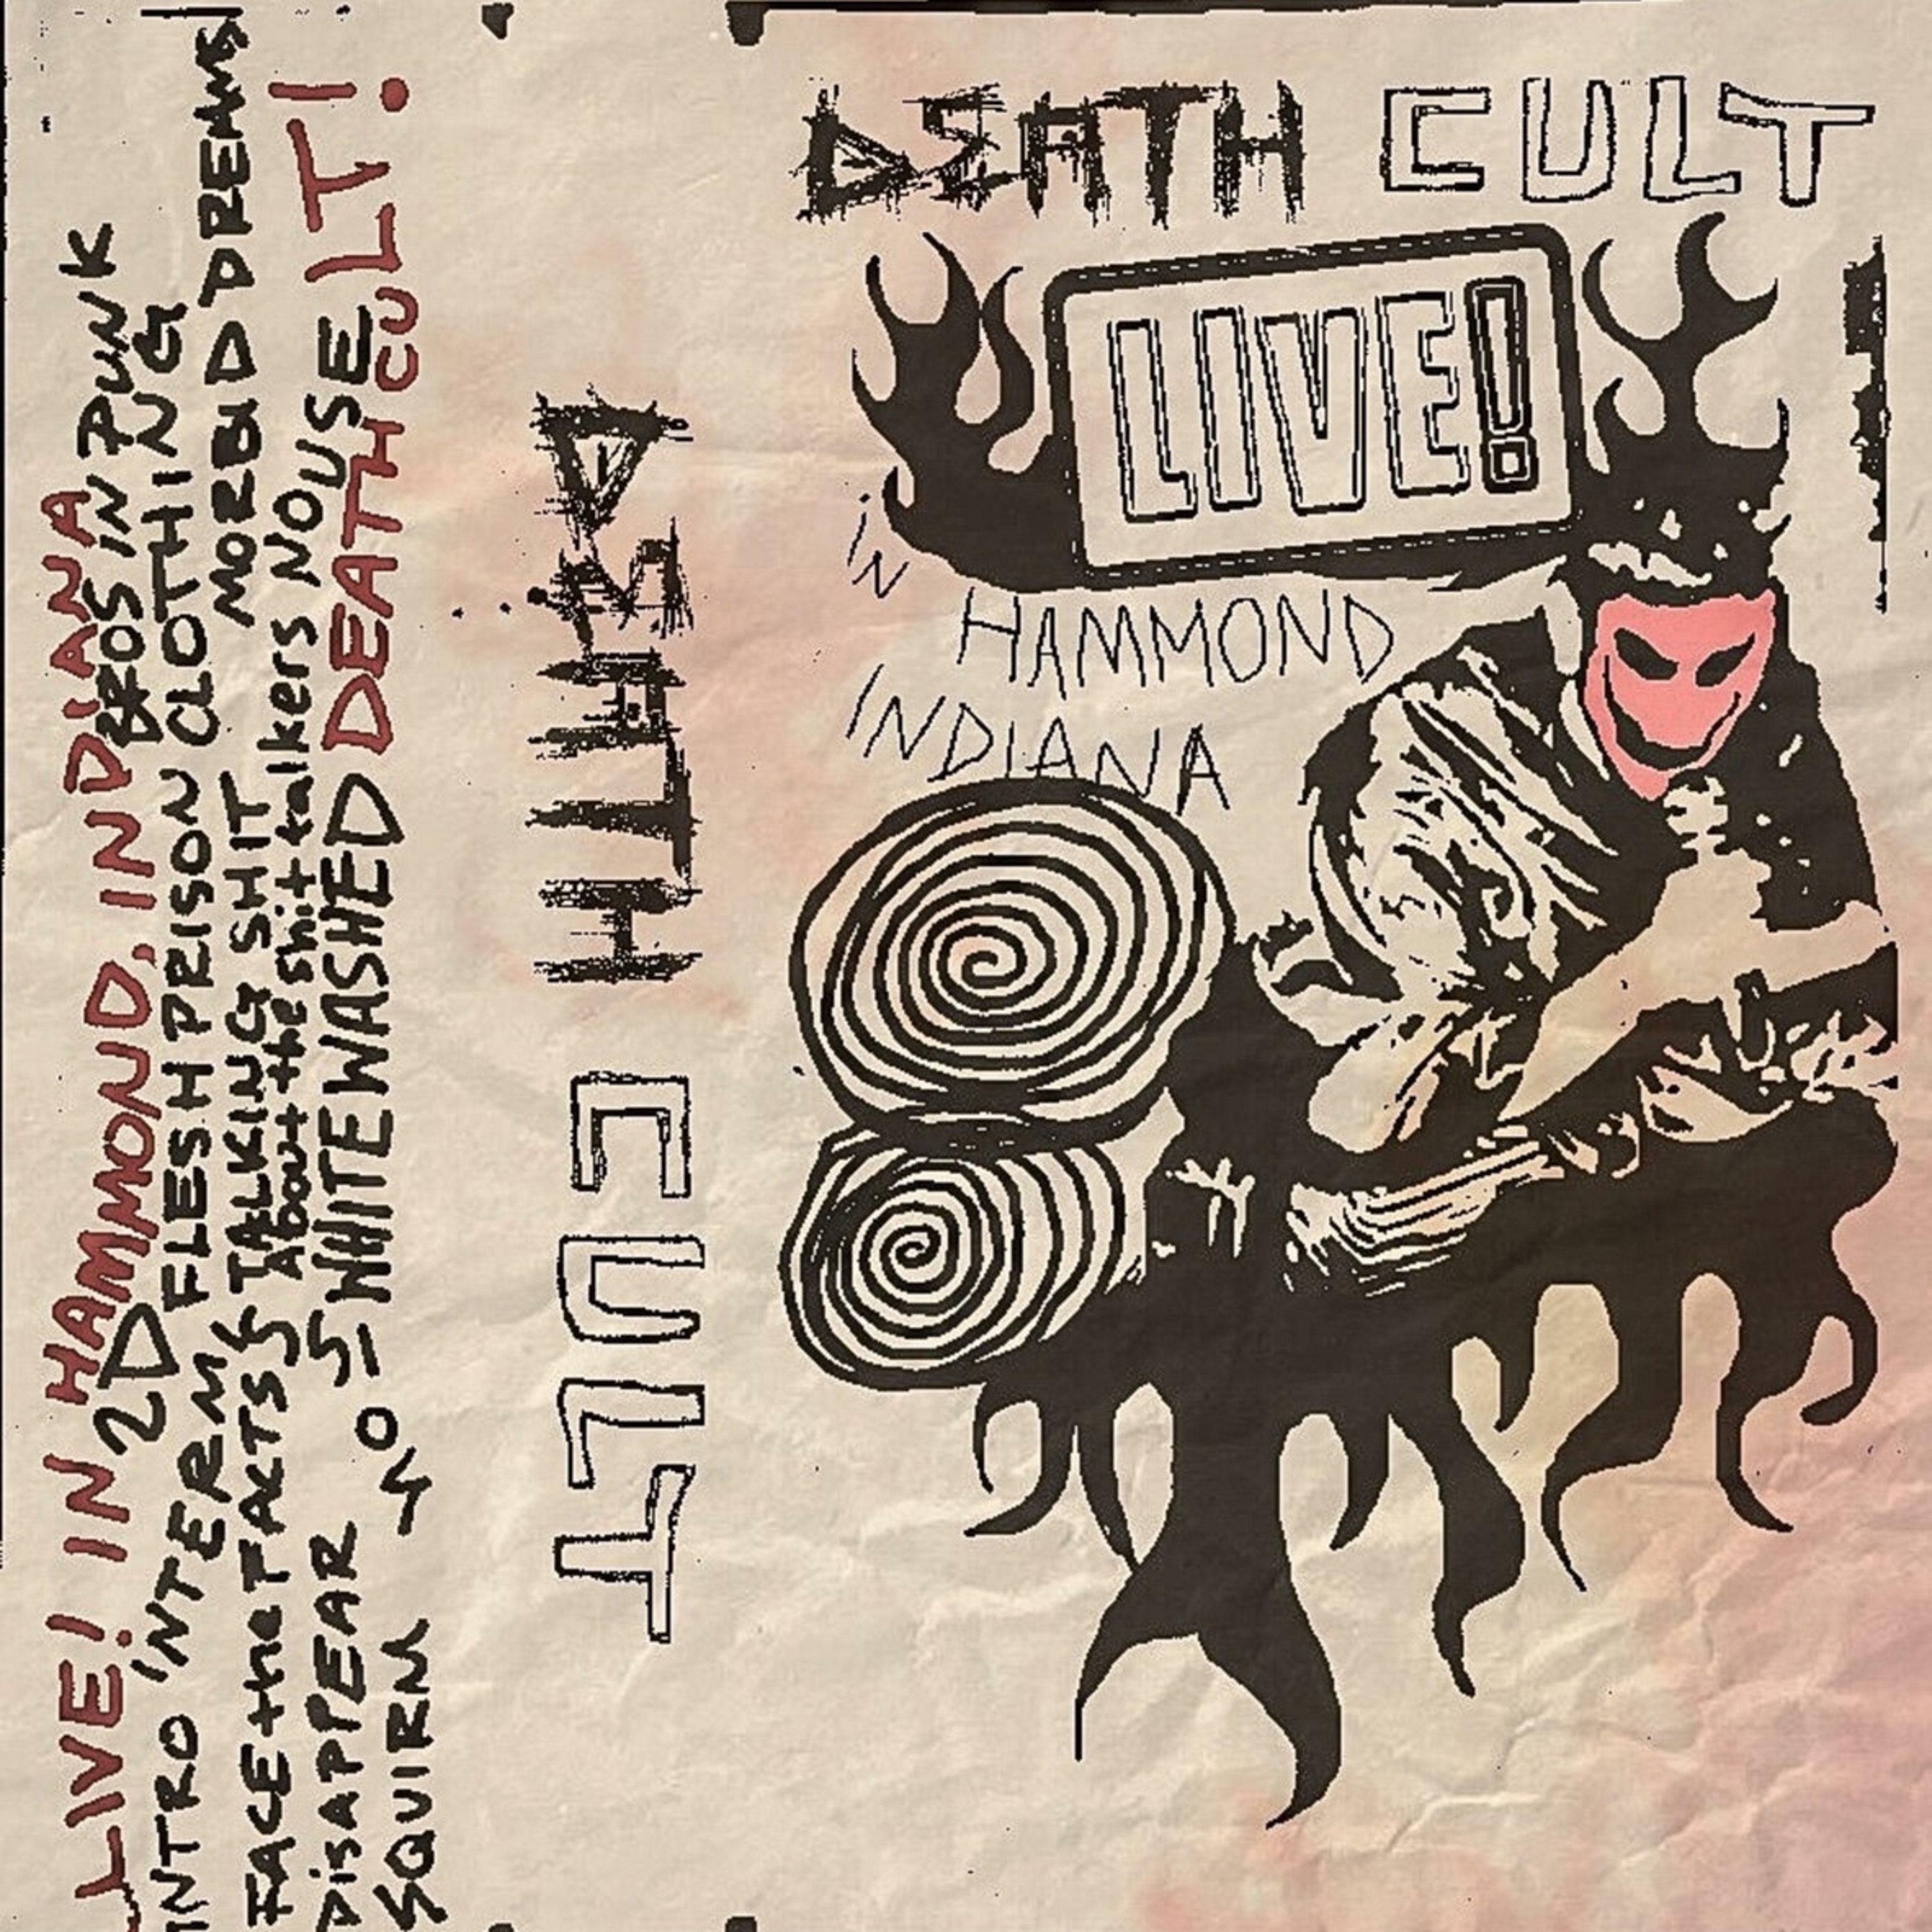 DEATH CULT
LIVE!
IN
HAMMOND
INDIANA
DEATH CULT
LIVE! IN HAMMOND, INDIANA
INTRO INTERM 2D BROS IN PUNK
FLESH PRISON CLOTHING
FACE the FACTS TALKING SHIT MORBID DREAMS
About the shit talkers NO USE
DISAPPEAR WHITEWASHED DEATH CULT!
SQUIRM